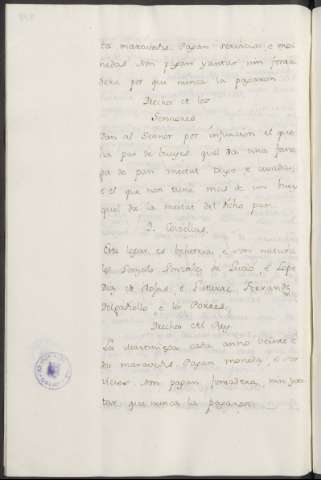 ta maravedis. Pagan servicios, e mo
nedas. Non pagan yantar nin fonsa
dera por que nunca la pagaron
Drechos de los
Sennores
Dan al Sennor por infurcion el que
ha par de bueyes quel da una fane
ga de pan meitat trigo e cevada;
e el que non tiene mas de un buey
quel de la meitat del dicho pan.
Este logar es behetria, e son naturale
los Gonzalo Gonzalez de Lucio, e Lope
Diaz de Rojas, e Gutierre Ferrandz
Delgadiello e los Porres,
Drechos del Rey
La Martiniega cada anno veinte e
dos maravedis. Pagan moneda, e ser
vicios. Non pagan fonsadera, nin yan
tar que nunca la pagaron.